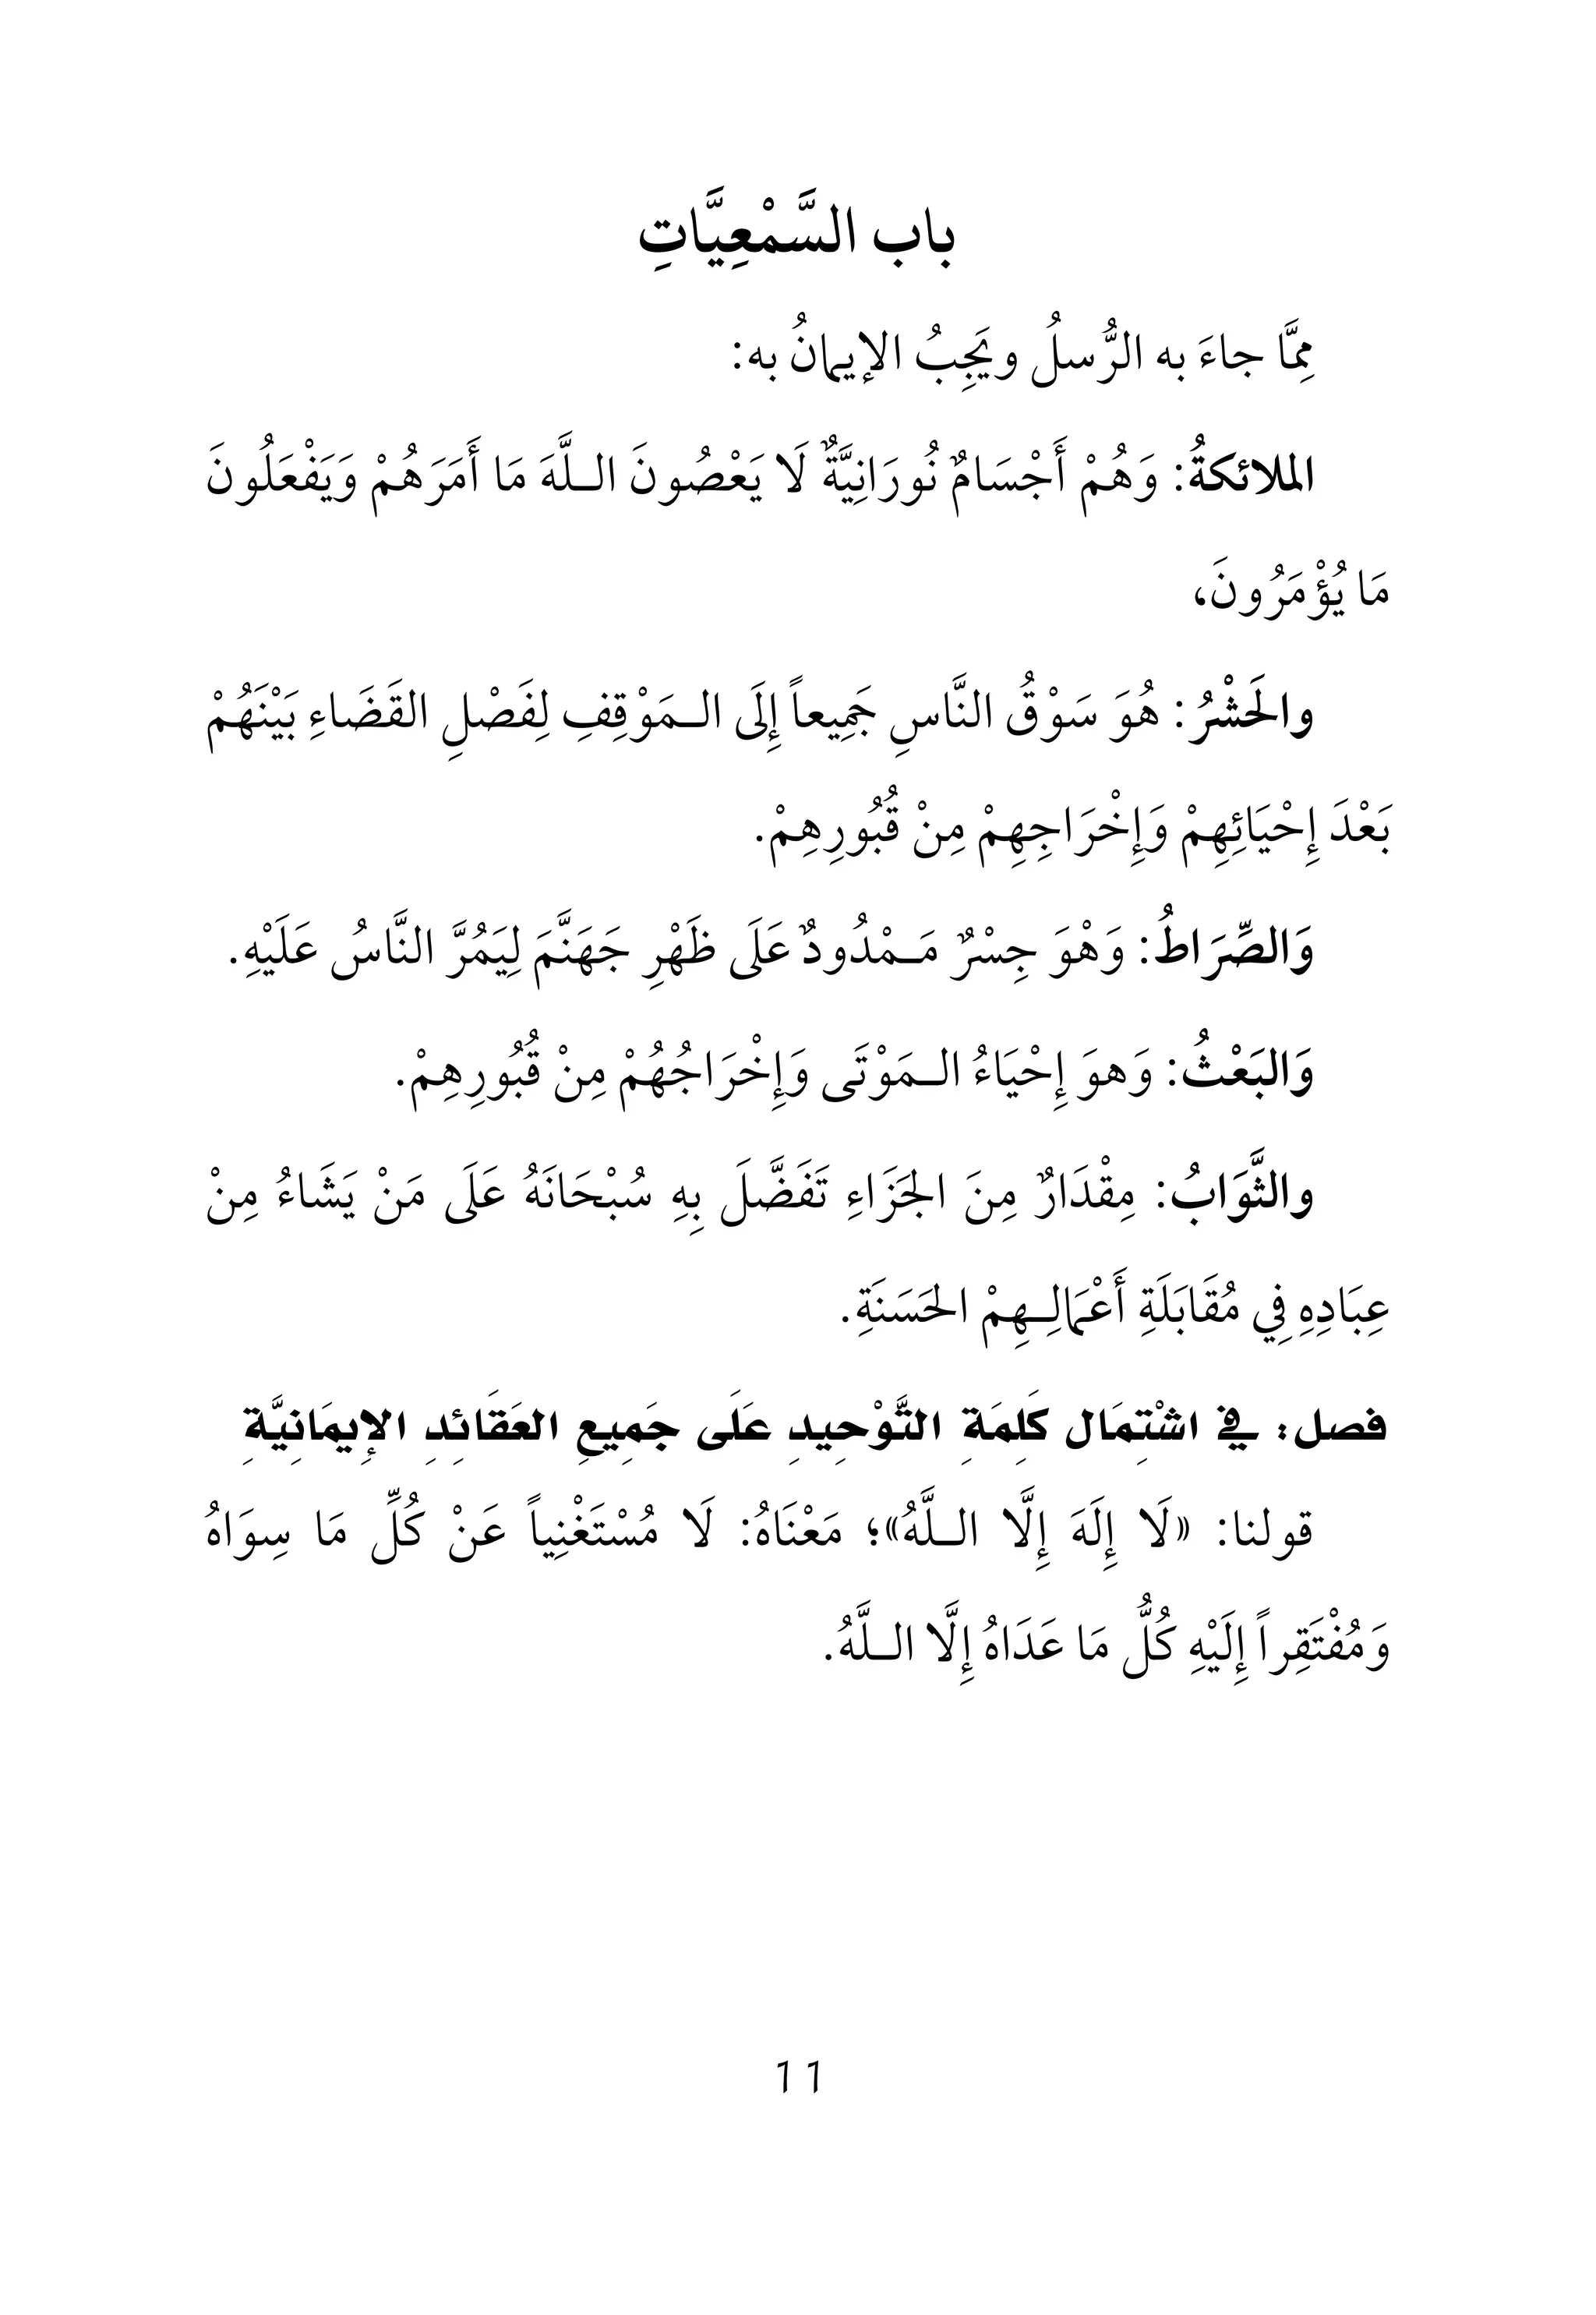 باب السَّمْعِيَّاتِ
مِمَّا جاءَ به الرُّسلُ ويَجِبُ الإيمانُ به:
الملائكةُ: وَهُمْ أَجْسَامٌ نُورَانِيَّةٌ لَا يَعْصُونَ الـلَّهَ مَا أَمَرَهُمْ وَيَفْعَلُونَ
مَا يُؤْمَرُونَ،
والحَشْرُ: هُوَ سَوْقُ النَّاسِ جَمِيعاً إِلَى الـمَوْقِفِ لِفَصْلِ القَضَاءِ بَيْنَهُمْ
بَعْدَ إِحْيَائِهِمْ وَإِخْرَاجِهِمْ مِنْ قُبُورِهِمْ.
وَالصِّرَاطُ: وَهْوَ جِسْرٌ مَـمْدُودٌ عَلَى ظَهْرِ جَهَنَّمَ لِيَمُرَّ النَّاسُ عَلَيْهِ.
وَالبَعْثُ: وَهوَ إِحْيَاءُ الـمَوْتَى وَإِخْرَاجُهُمْ مِنْ قُبُورِهِمْ.
والثَّوَابُ: مِقْدَارٌ مِنَ الجَزَاءِ تَفَضَّلَ بِهِ سُبْحَانَهُ عَلَى مَنْ يَشَاءُ مِنْ
عِبَادِهِ فِي مُقَابَلَةِ أَعْمَالِـهِمْ الحَسَنَةِ.
فصل: في اشْتِمَال كَلِمَةِ التَّوْحِيدِ عَلَى جَمِيعِ العَقَائِدِ الإِيمَانِيَّةِ
قولنا: «لَا إِلَهَ إِلَّا الـلَّهُ»؛ مَعْنَاهُ: لَا مُسْتَغْنِياً عَنْ كُلِّ مَا سِوَاهُ
وَمُفْتَقِراً إِلَيْهِ كُلُّ مَا عَدَاهُ إِلَّا الـلَّهُ.
11